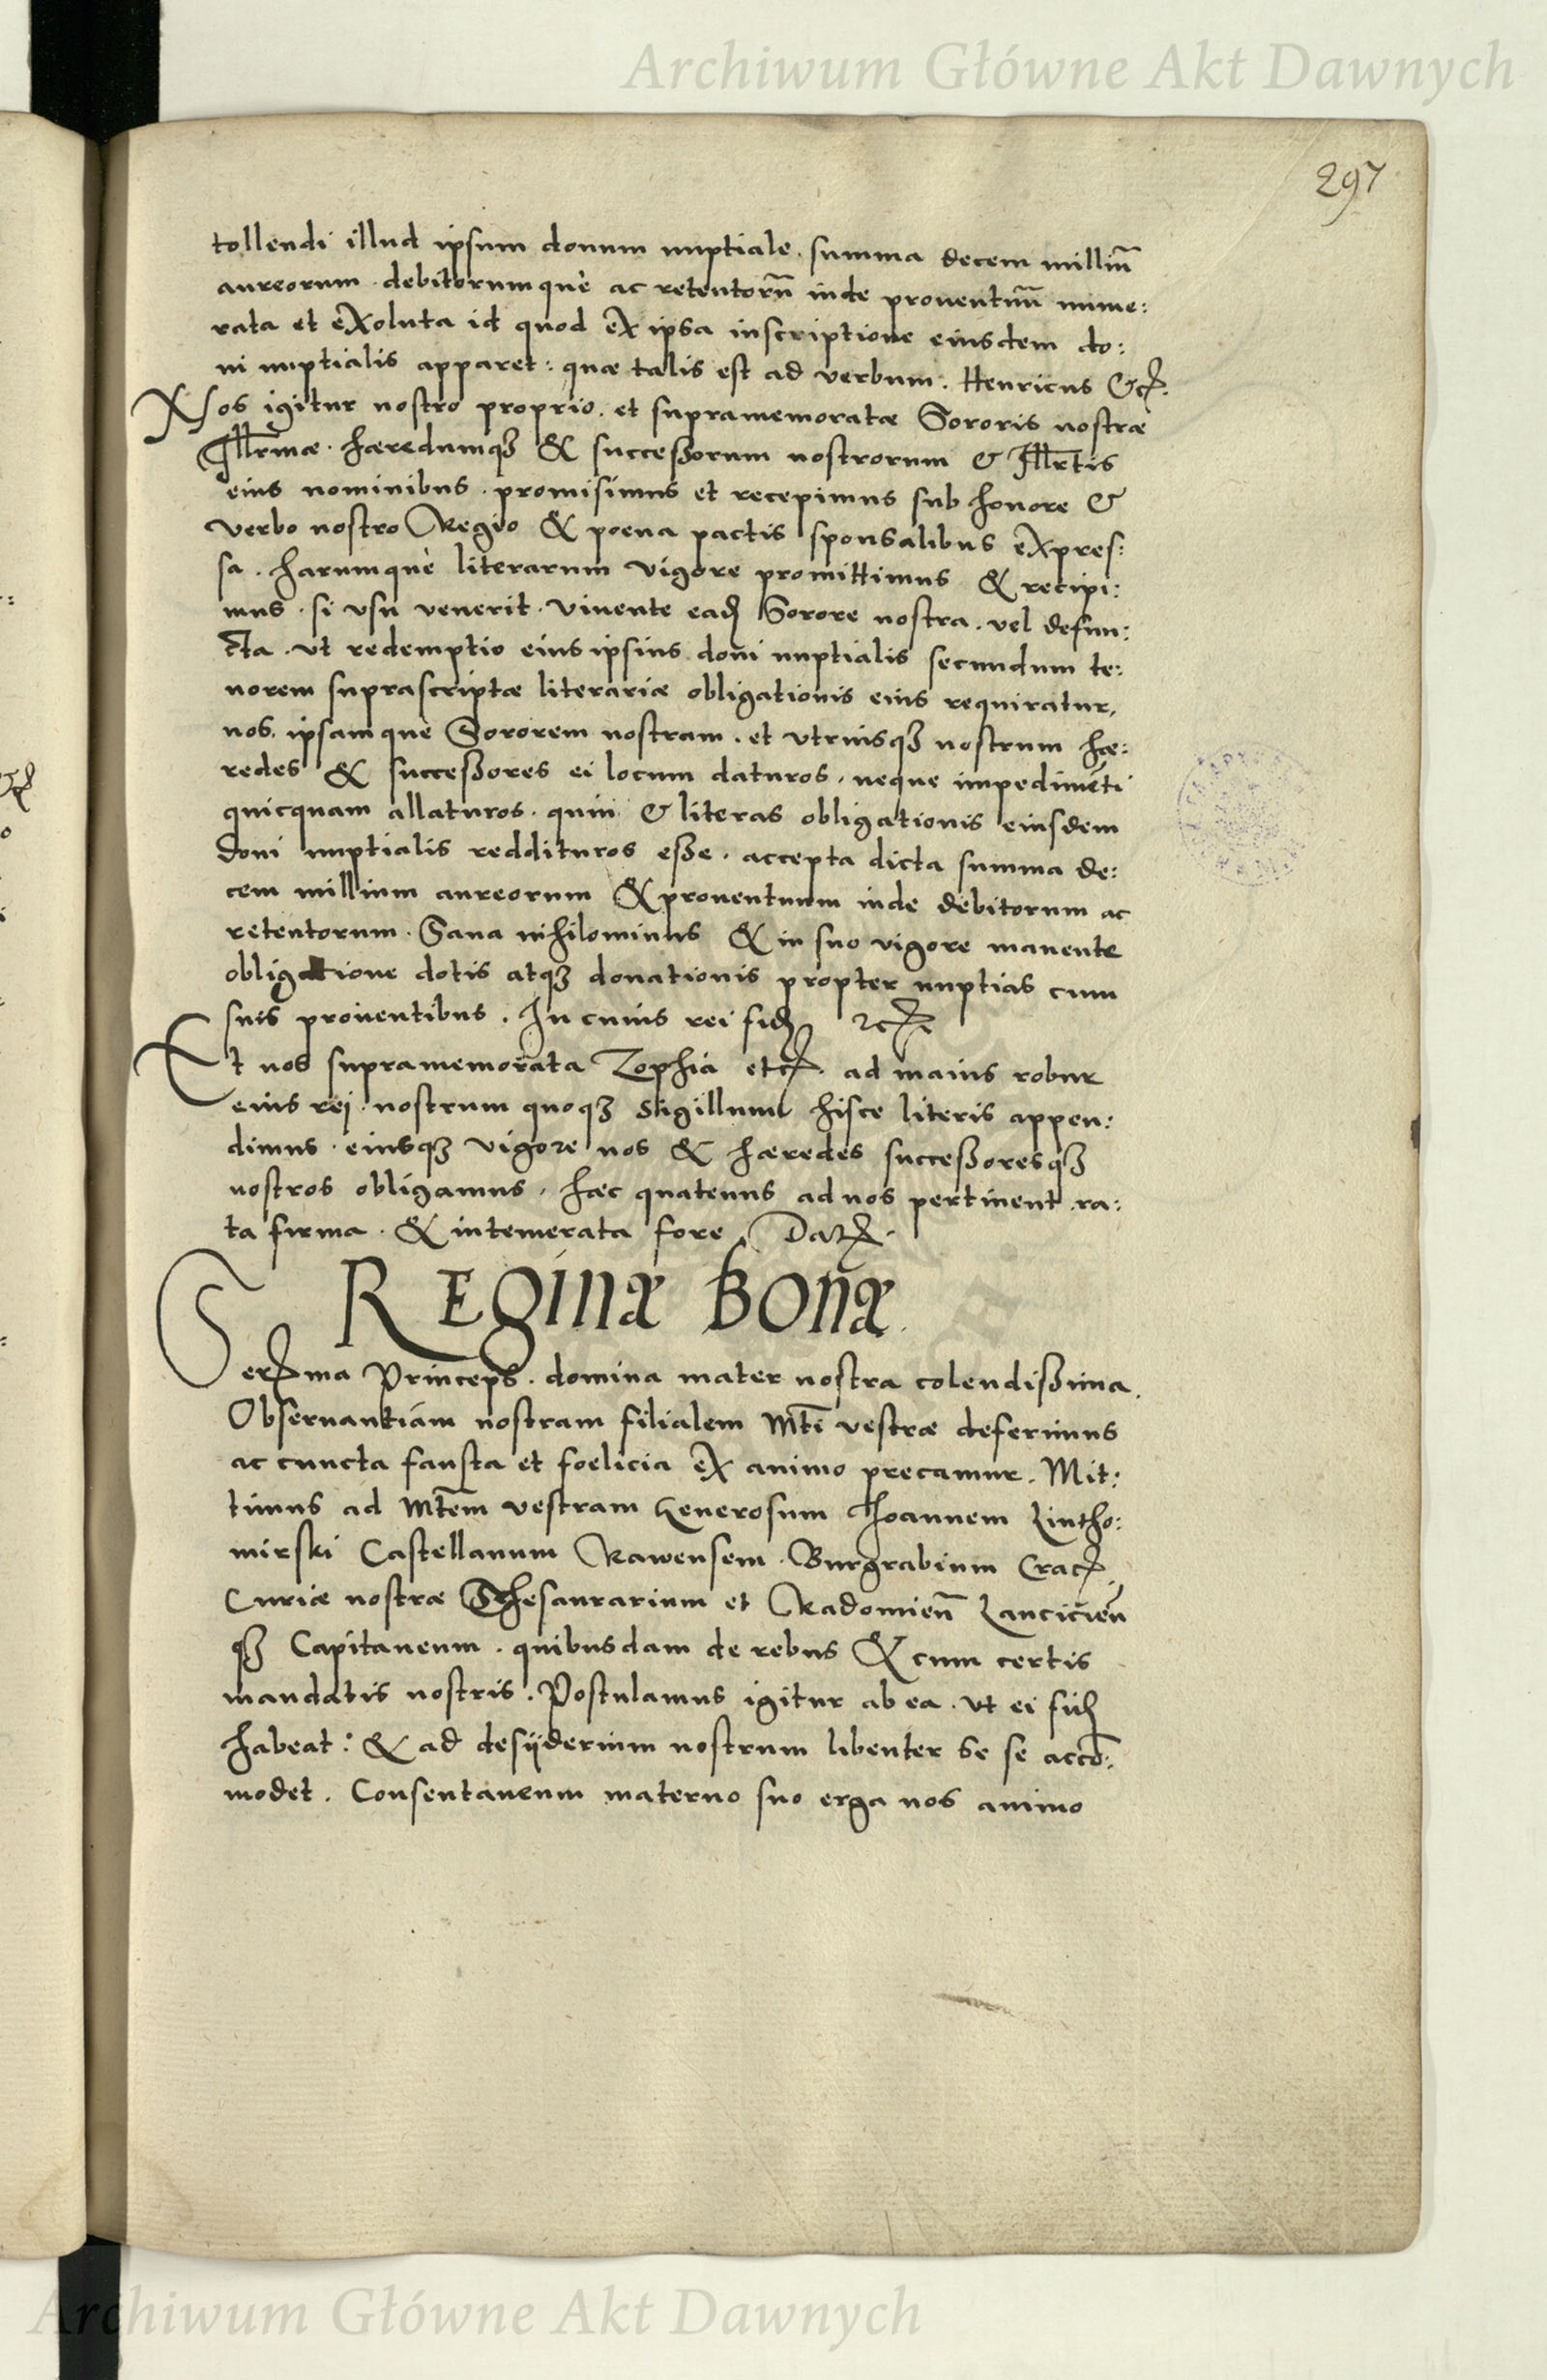 Archiwum Główne Akt Dawnych
297
tollendi illud ipsum donum nuptiale. summa decem milliū
aureorum. debitorumquè ac retentorū inde prouentuū nume:
rata et exoluta id quod ex ipsa inscriptione eiusdem do:
ni nuptialis apparet: quæ talis est ad verbum. Henricus &c.
Nos igitur nostro proprio. et supramemoratæ Sororis nostræ
Illr̄mæ. hæredumqꝫ & successorum nostrorum & Illr̄tis
eius nominibus. promisimus et recepimus sub honore &
verbo nostro Regio & poena pactis sponsalibus expres:
sa. harumquè literarum vigore promittimus & recipi:
mus. si vsu venerit. viuente ead Sorore nostra. vel defun:
cta. vt redemptio eius ipsius doni nuptialis secundum te:
norem suprascriptæ literariæ obligationis eius requiratur,
nos. ipsamquè Sororem nostram. et vtriusqꝫ nostrum hæ:
redes & successores ei locum daturos. neque impedimēti
quicquam allaturos. quin & literas obligationis eiusdem
doni nuptialis reddituros esse. accepta dicta summa de:
cem millium aureorum & prouentuum inde debitorum ac
retentorum. Sana nihilominus & in suo vigore manente
obligatione dotis atqꝫ donationis propter nuptias cum
suis prouentibus. In cuius rei fid ⁊c
Et nos supramemorata Zophia etc. ad maius robur
eius rei. nostrum quoqꝫ sigillum hisce literis appen:
dimus. eiusqꝫ vigore nos & hæredes successoresqꝫ
nostros obligamus. hæc quatenus ad nos pertinent ra:
ta firma. & intemerata fore. Dat.
REginæ Bonæ.
Serma Princeps. domina mater nostra colendissima.
Obseruantiam nostram filialem Mt̄i vestræ deferimus
ac cuncta fausta et foelicia ex animo precamur. Mit:
timus ad Mt̄em vestram Generosum Ioannem Lutho:
mirski Castellanum Rawensem. Burgrabium Crac.
Curiæ nostræ Thesaurarium et Radomien̄ Lancicien̄
qꝫ Capitaneum. quibusdam de rebus & cum certis
mandatis nostris. Postulamus igitur ab ea. vt ei fid
habeat: & ad desyderium nostrum libenter se se accō:
modet. Consentaneum materno suo erga nos animo
Archiwum Główne Akt Dawnych